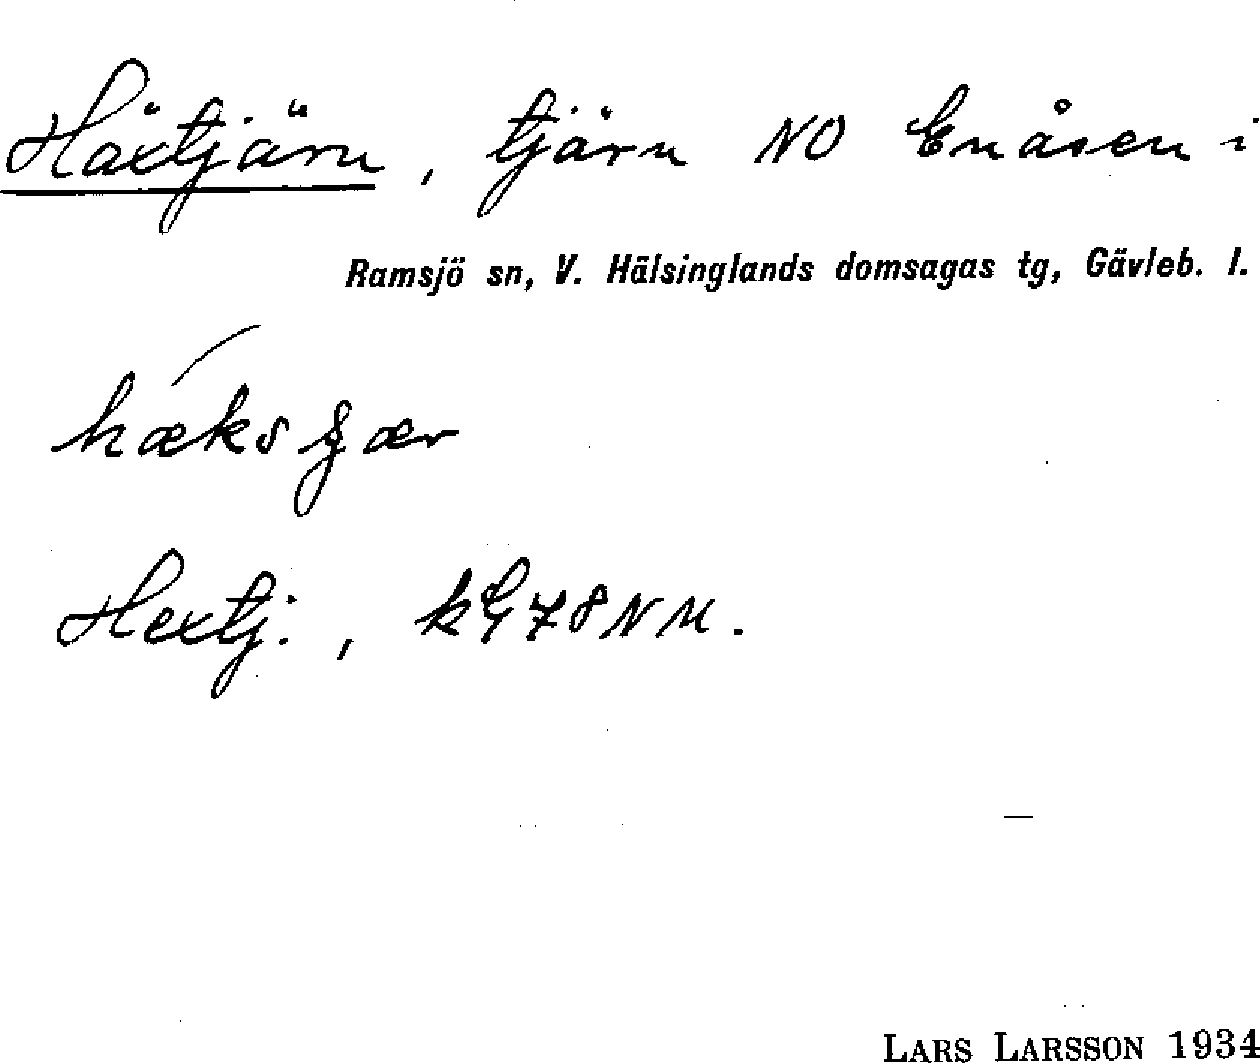 Häxtjärn, tjärn NO Enåsen i
Ramsjö sn, V. Hälsinglands domsagas tg, Gävleb. l.
Hextj:,
LARS LARSSON 1934